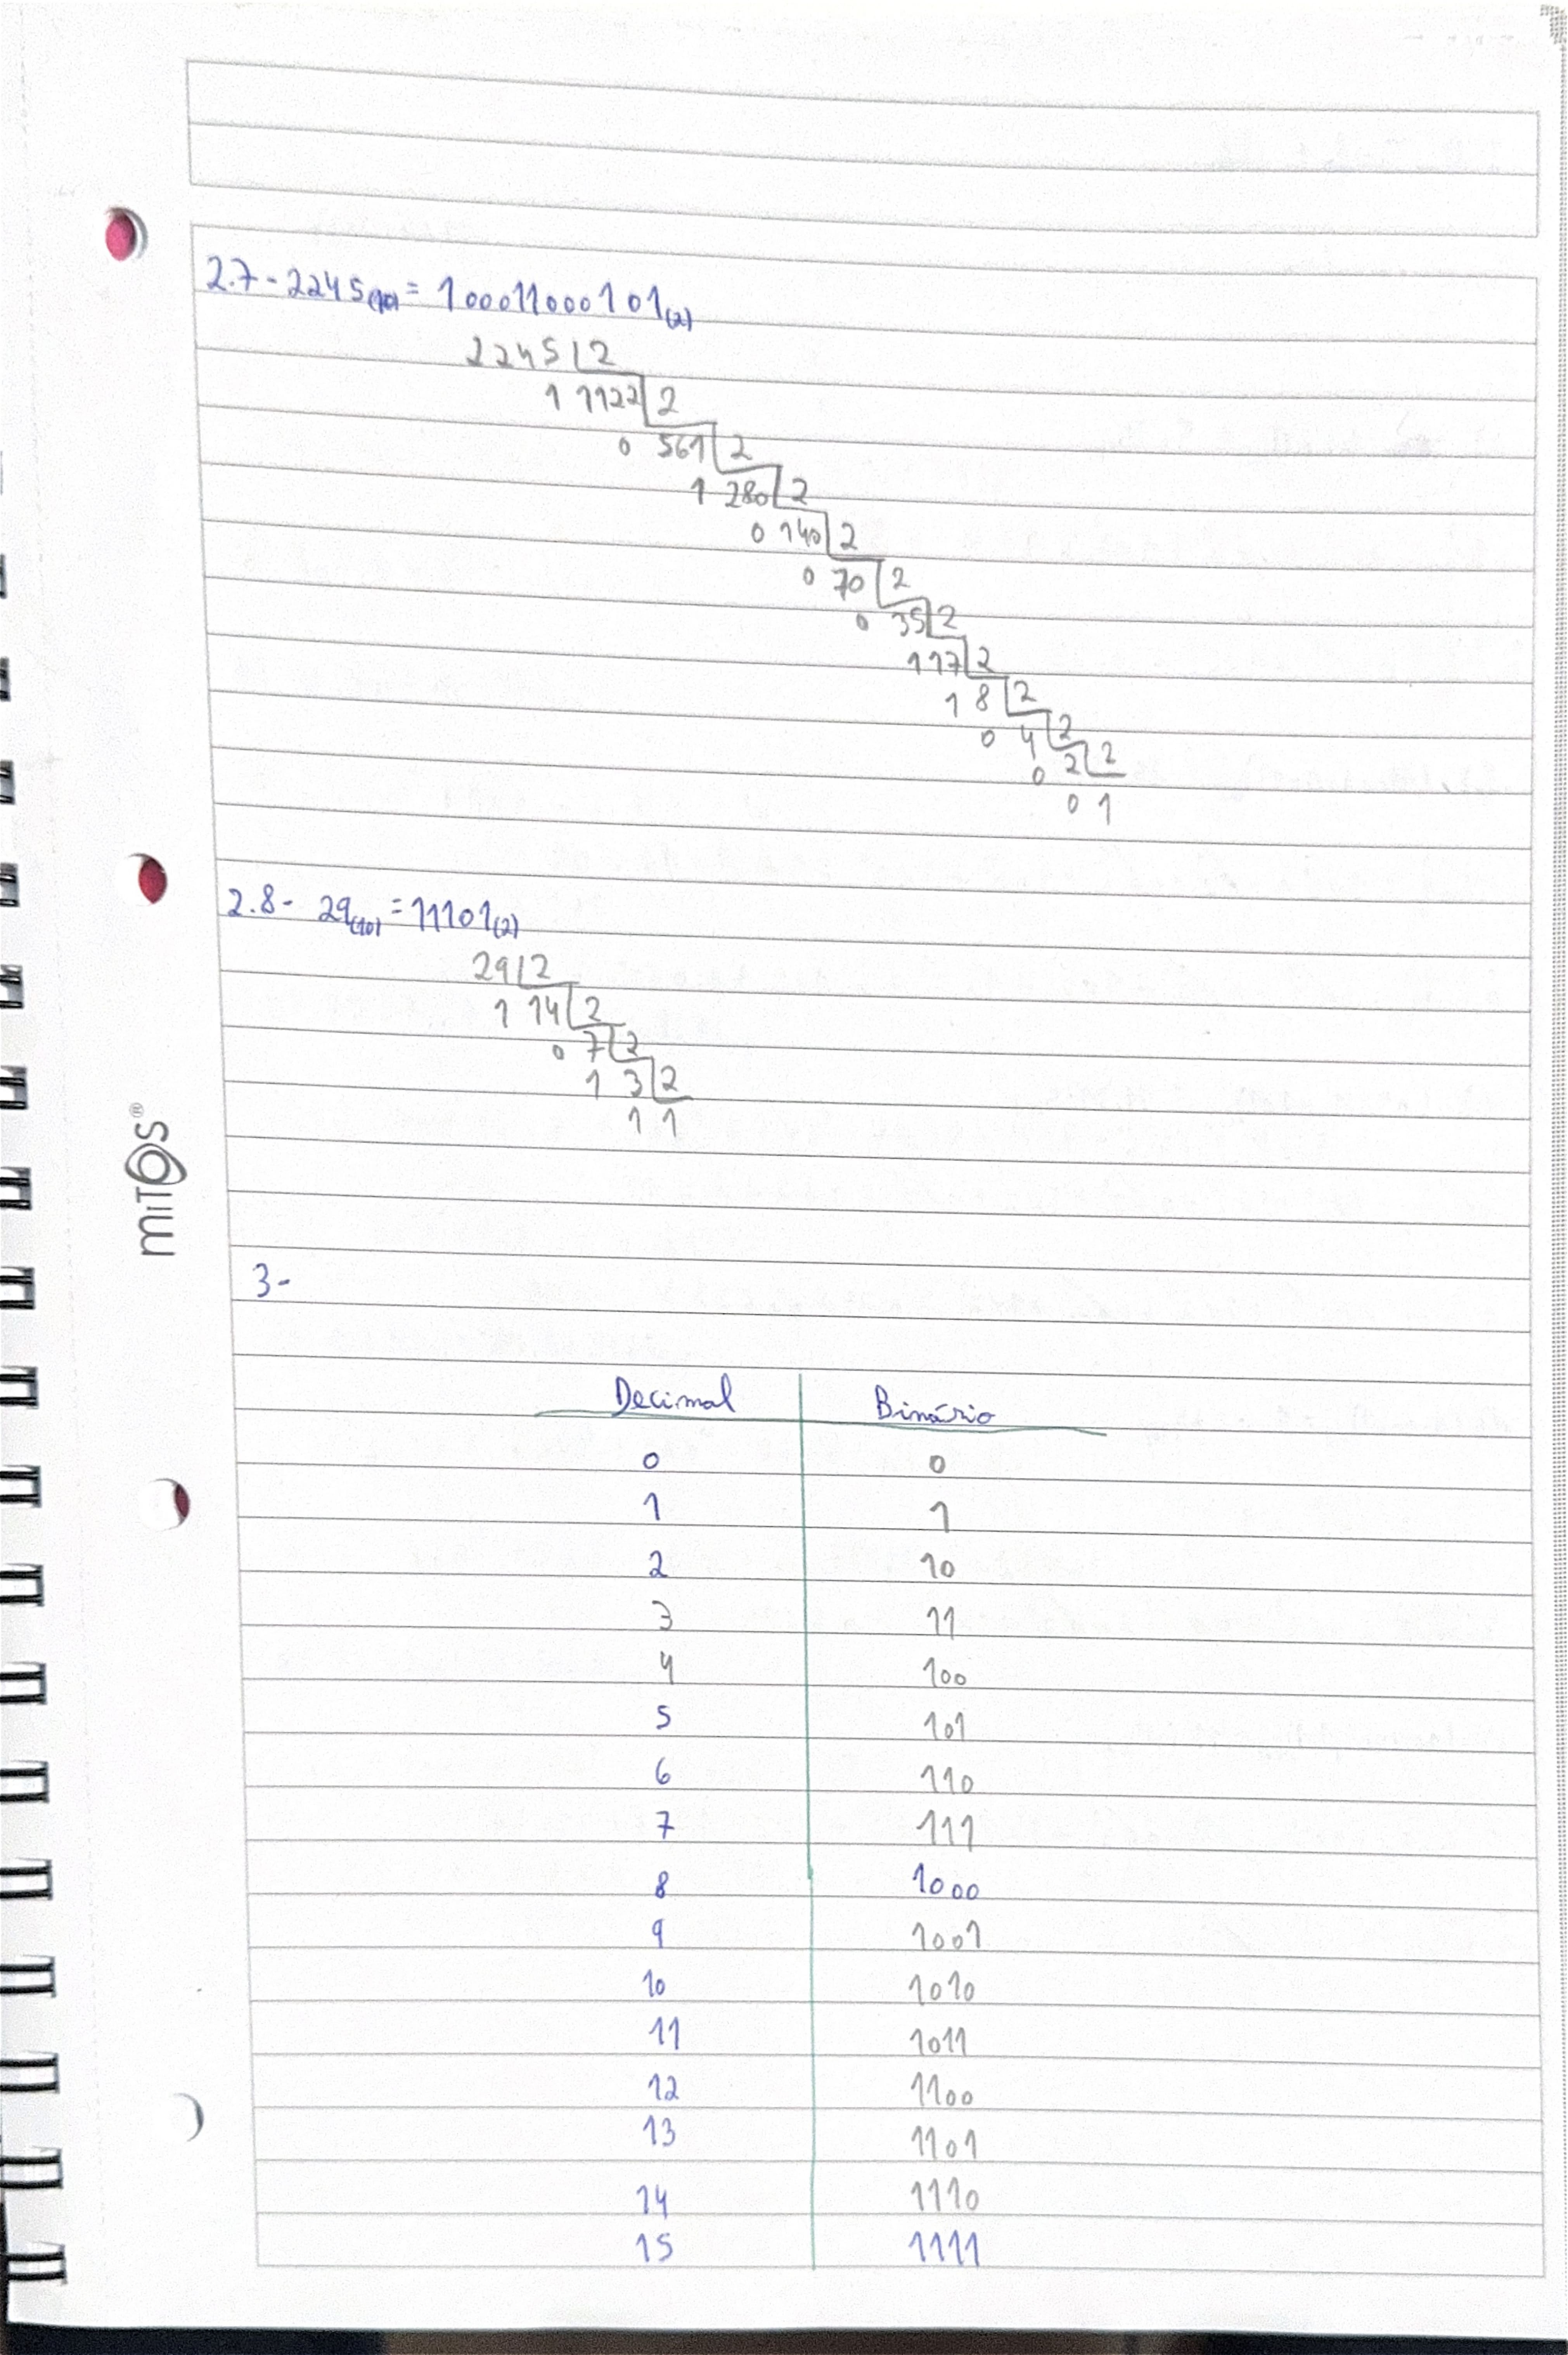 2.7 - 2245(10) = 100011000101(2)
2245 2
1 1122 2
0 561 2
1 280 2
0 140 2
0 70 2
0 35 2
1 17 2
1 8 2
0 4 2
0 2 2
0 1
2.8 - 29(10) = 11101(2)
29 2
1 14 2
0 7 2
1 3 2
1 1
miTOS®
3-
Decimal Binário
0 0
1 1
2 10
3 11
4 100
5 101
6 110
7 111
8 1000
9 1001
10 1010
11 1011
12 1100
13 1101
14 1110
15 1111